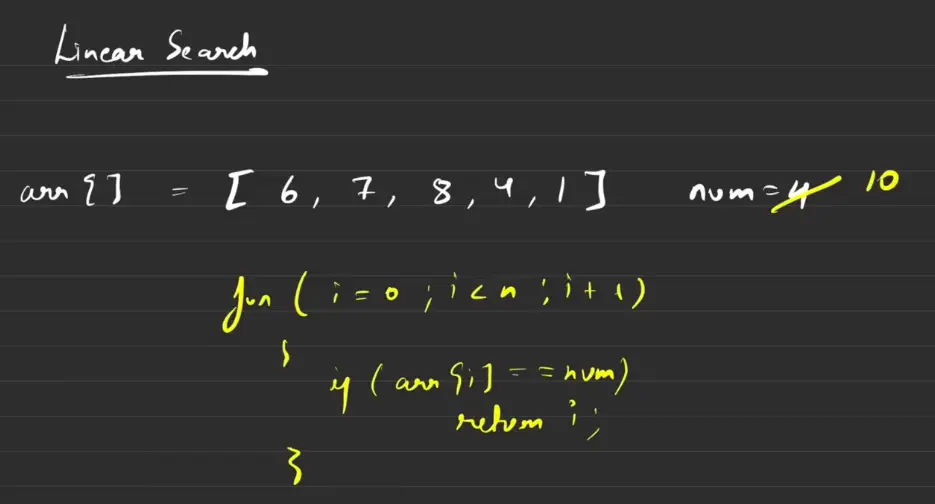 Linear Search
arr[] = [6, 7, 8, 4, 1] num = 4 10
for (i = 0 ; i < n ; i + 1)
{
if (arr[i] == num)
return i;
}